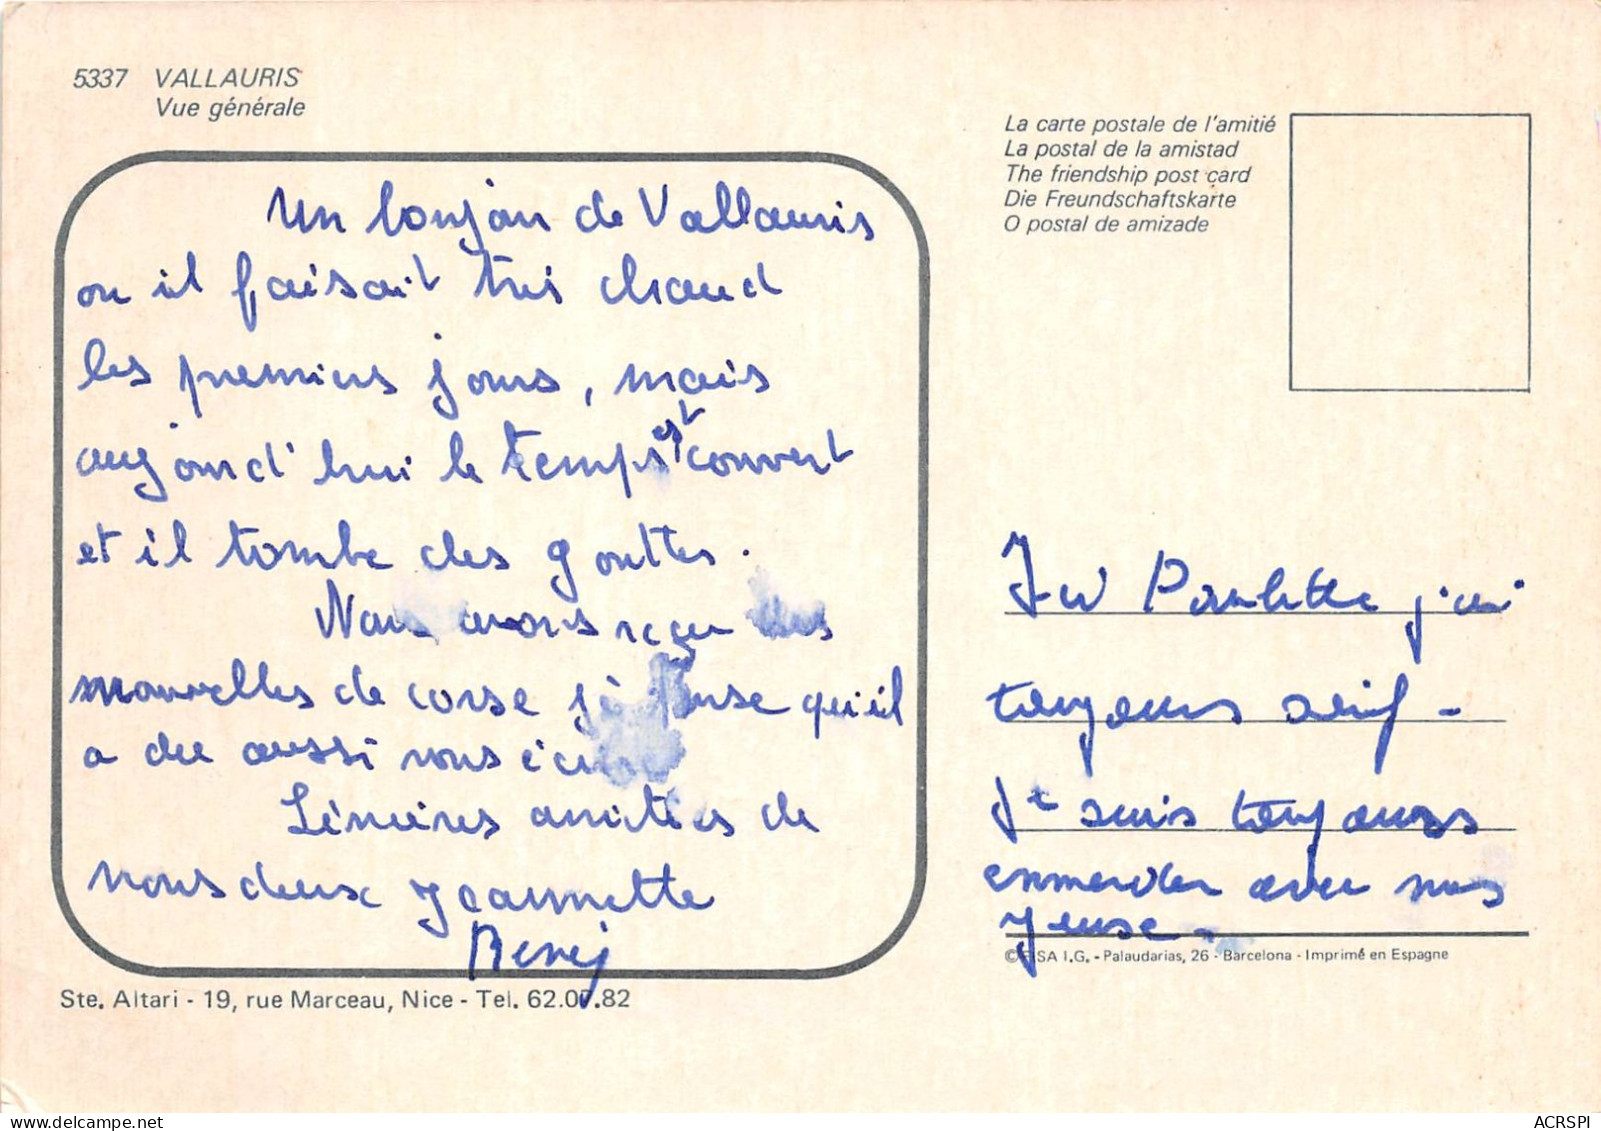 5337 VALLAURIS
Vue générale
un bonjour de Vallauris
ou il faisait très chaud
les premiers jours, mais
aujourd'hui le temps est couvert
et il tombe des gouttes.
Nous avons reçu des
nouvelles de corse je pense qu'il
a du aussi vous écrire
Sincères amitiés de
nous deux Jeannette
Ste. Altari - 19, rue Marceau, Nice - Tel. 62.07.82
La carte postale de l'amitié
La postal de la amistad
The friendship post card
Die Freundschaftskarte
O postal de amizade
Ici Paulette j'ai
toujours soif -
je suis toujours
enmerder avec mes
yeuse -
© FISA I.G. - Palaudarias, 26 - Barcelona - Imprimé en Espagne
ACRSPI